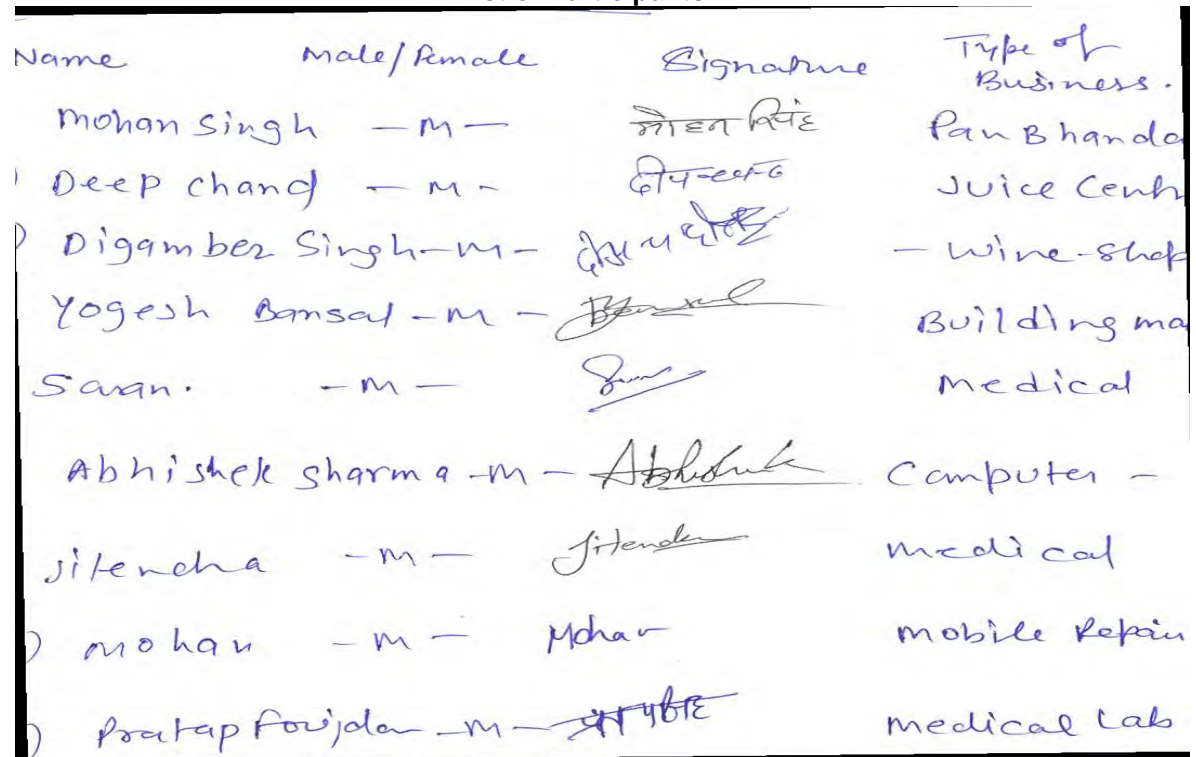 Name Male/Female Signature Type of
Business.
Mohan Singh - M - मोहन सिंह Pan Bhanda
Deep Chand - M - दीपचन्द Juice Cent
) Digamber Singh - M - - Wine-Shop
Yogesh Bansal - M - Bansal Building ma
Saran. - M - Medical
Abhishek Sharma - M - Abhishek Computer -
Jitendra - M - Jitender Medical
) Mohan - M - Mohan Mobile Repair
) Pratap Foujdar - M - Medical Lab